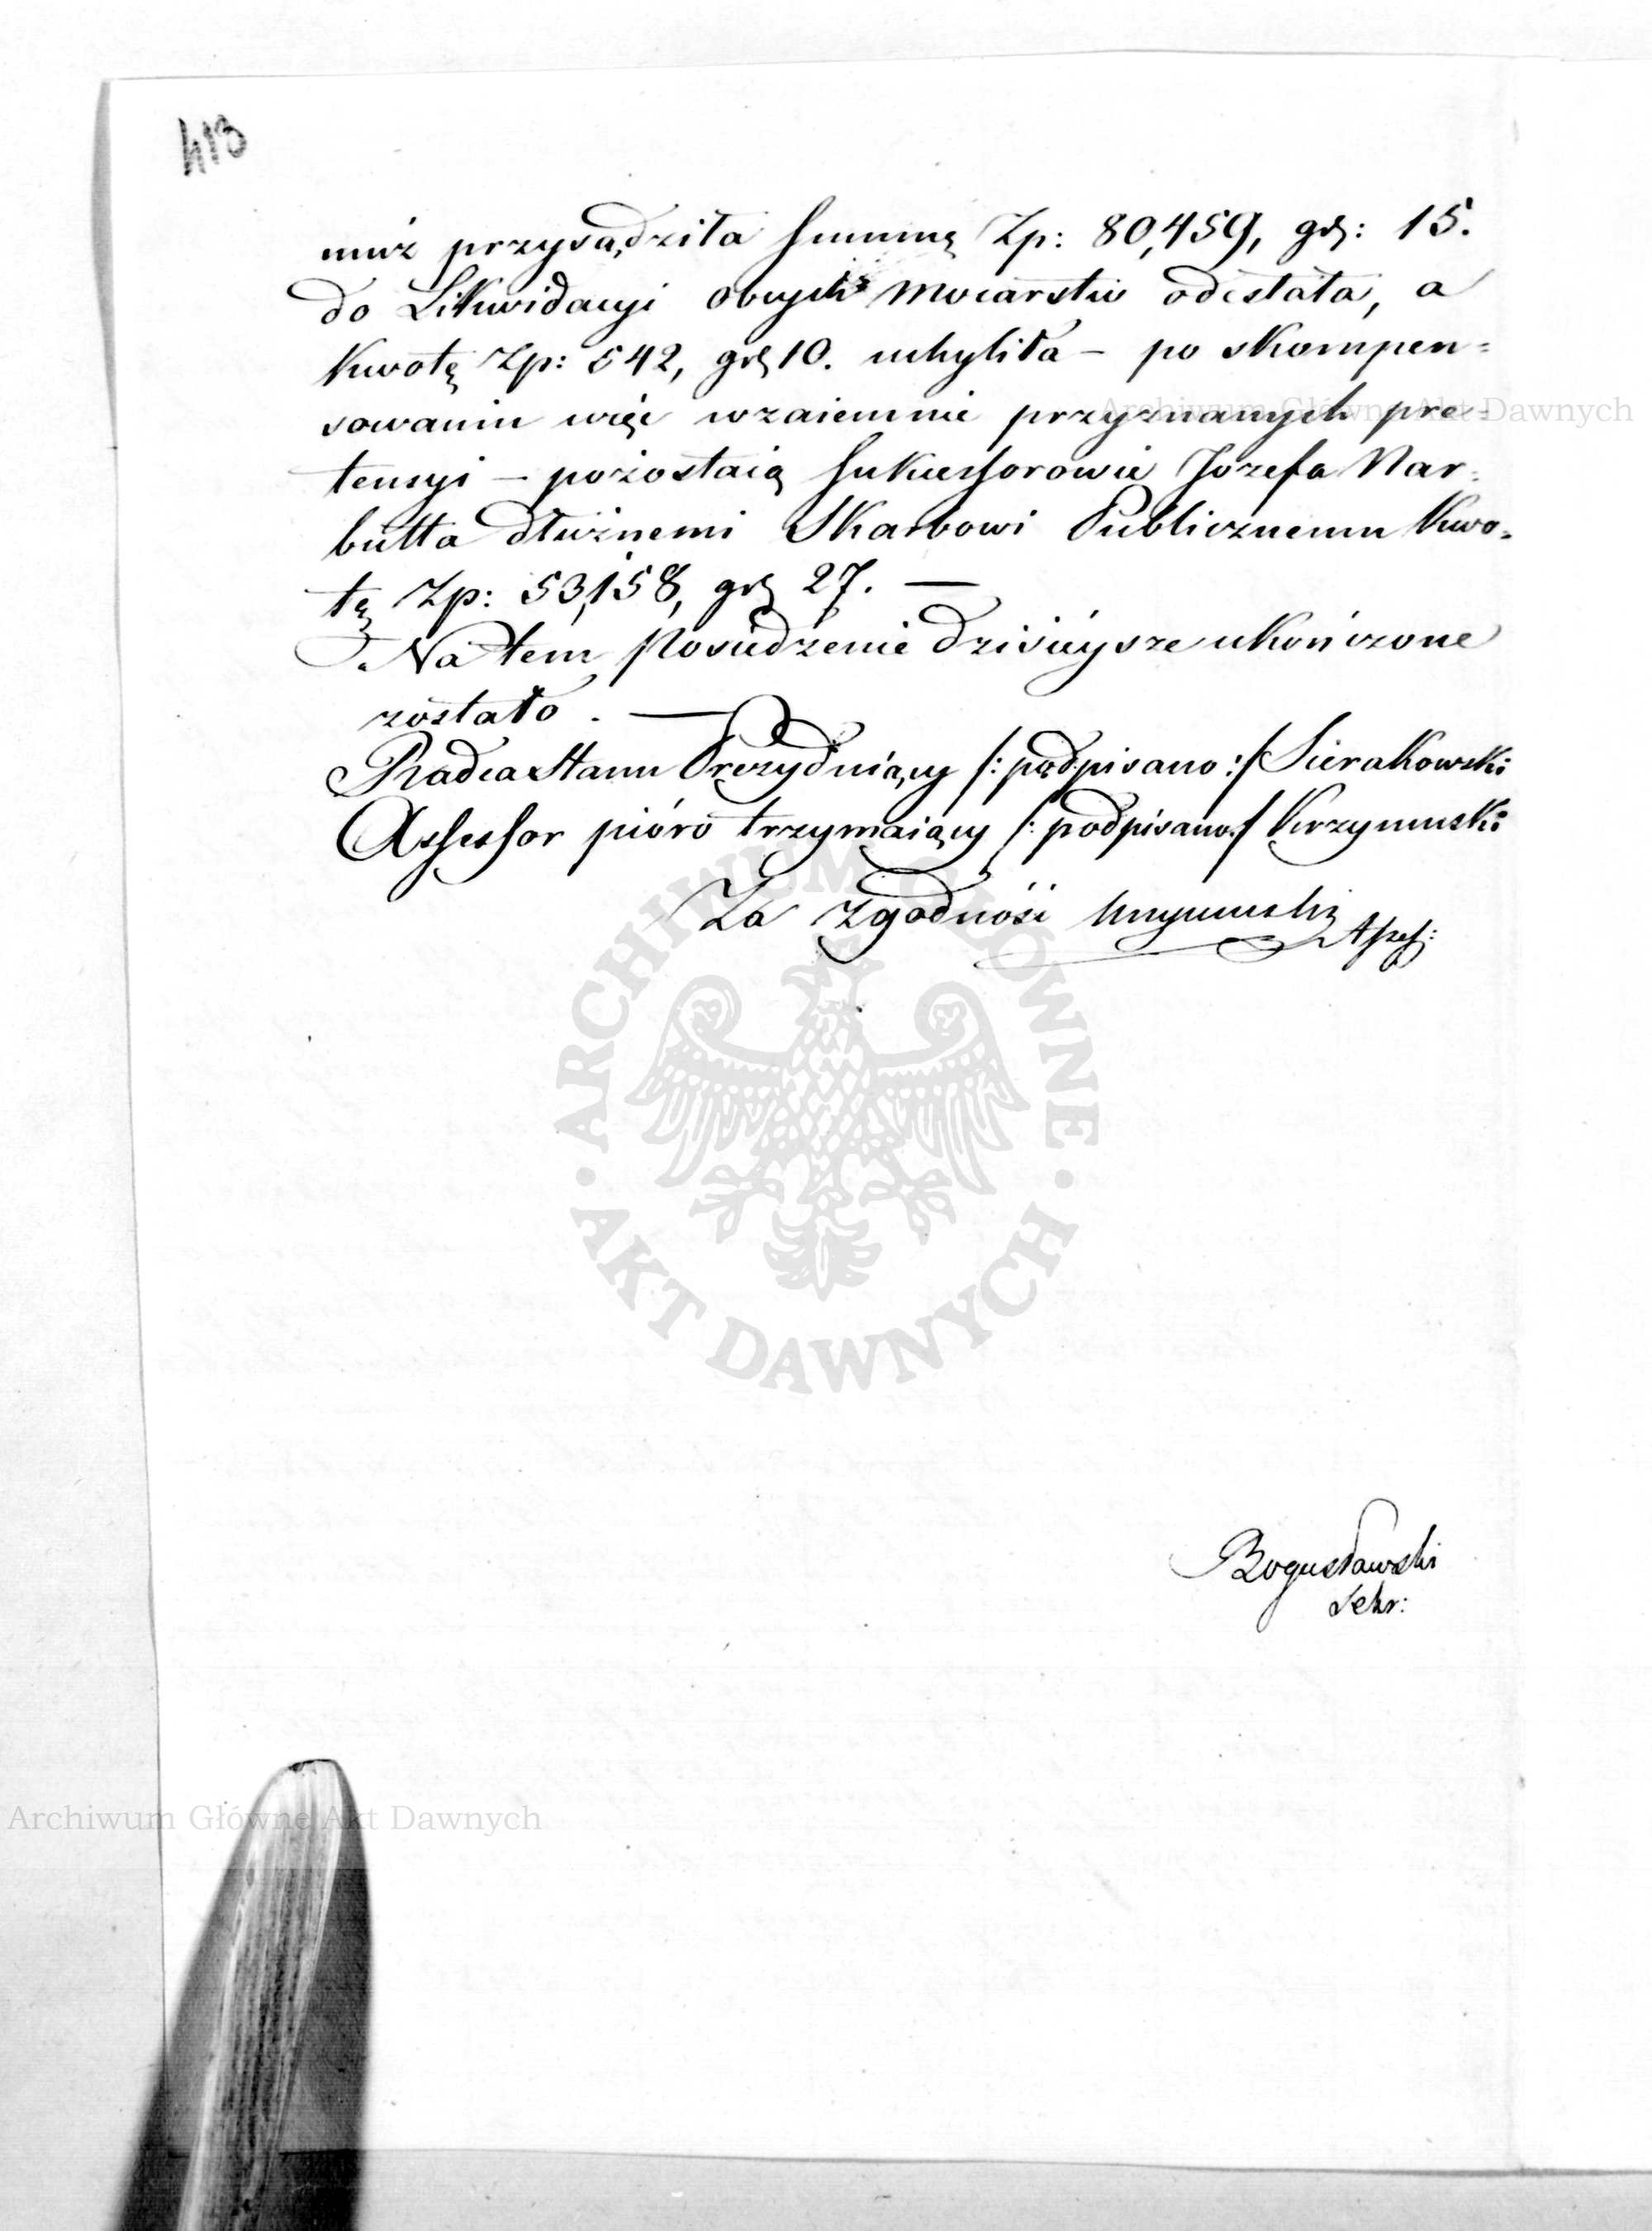 413
muż przysądziła summę Zp: 80,459, gr: 15.
do Likwidacyi obcych Mocarstw odesłała, a
kwotę Zp: 542, gr 10. uchyliła – po skompen=
sowaniu więc wzaiemnie przyznanych pre=
tensyi – pozostaią Sukcessorowie Jozefa Nar=
butta dłużnemi Skarbowi Publicznemu kwo=
tę Zp: 53,158, gr 27. —
Na tem Posiedzenie dzisieysze ukończone
zostało. —
Radca Stanu Prezyduiący /: podpisano :/ Sierakowski
Assessor pióro trzymaiący /: podpisano :/ Krzymuski
Za zgodność Krzymuski
Assess:
Bogusławski
Sekr:
Archiwum Główne Akt Dawnych
ARCHIWUM GŁÓWNE · AKT DAWNYCH ·
Archiwum Główne Akt Dawnych